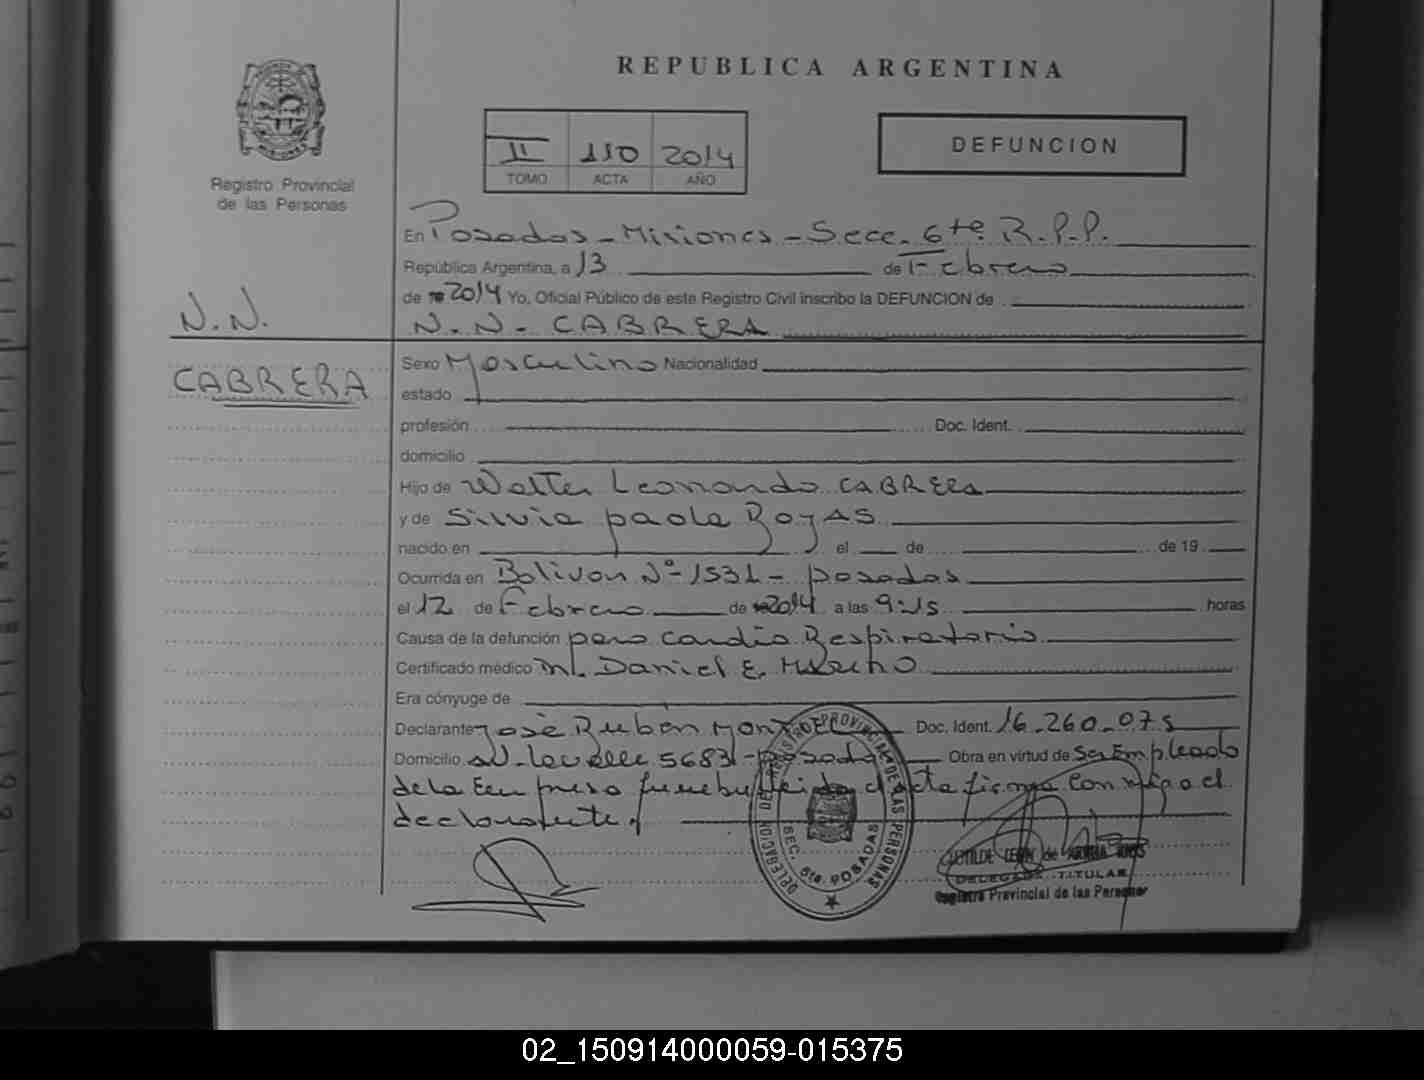 REPUBLICA ARGENTINA
Registro Provincial
de las Personas
II 110 2014
TOMO ACTA AÑO
DEFUNCION
En Posadas - Misiones - Secc. 6ta R.P.P.
República Argentina, a 13 de Febrero
de 2014 Yo, Oficial Público de este Registro Civil inscribo la DEFUNCION de
N.N.
N. N. CABRERA
CABRERA
Sexo Masculino Nacionalidad
estado
profesión Doc. Ident.
domicilio
Hijo de Walter Leonardo CABRERA
y de Silvia paola Rojas
nacido en el de de 19
Ocurrida en Bolivar Nº 1531 - posadas
el 12 de Febrero de 2014 a las 9:15 horas
Causa de la defunción paro cardio Respiratorio
Certificado médico m. Daniel E.
Era cónyuge de
Declarante José Ruben Doc. Ident. 16.260.075
Domicilio 5683 - posadas Obra en virtud de Ser Empleado
de la Empresa acta firma conmigo el
declarante.
DELEGACION DEL REGISTRO PROVINCIAL DE LAS PERSONAS
SEC. 6ta. POSADAS
DELEGADA TITULAR
Registro Provincial de las Personas
02_150914000059-015375